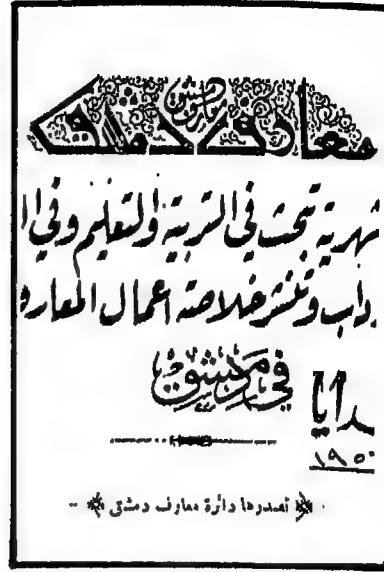 معارف دمشق
شهرية تبحث في التربية والتعليم وفي ا
داب وتنشر خلاصة اعمال المعار
في دمشق
ـدايا
١٩٥٠
تصدرها دائرة معارف دمشق